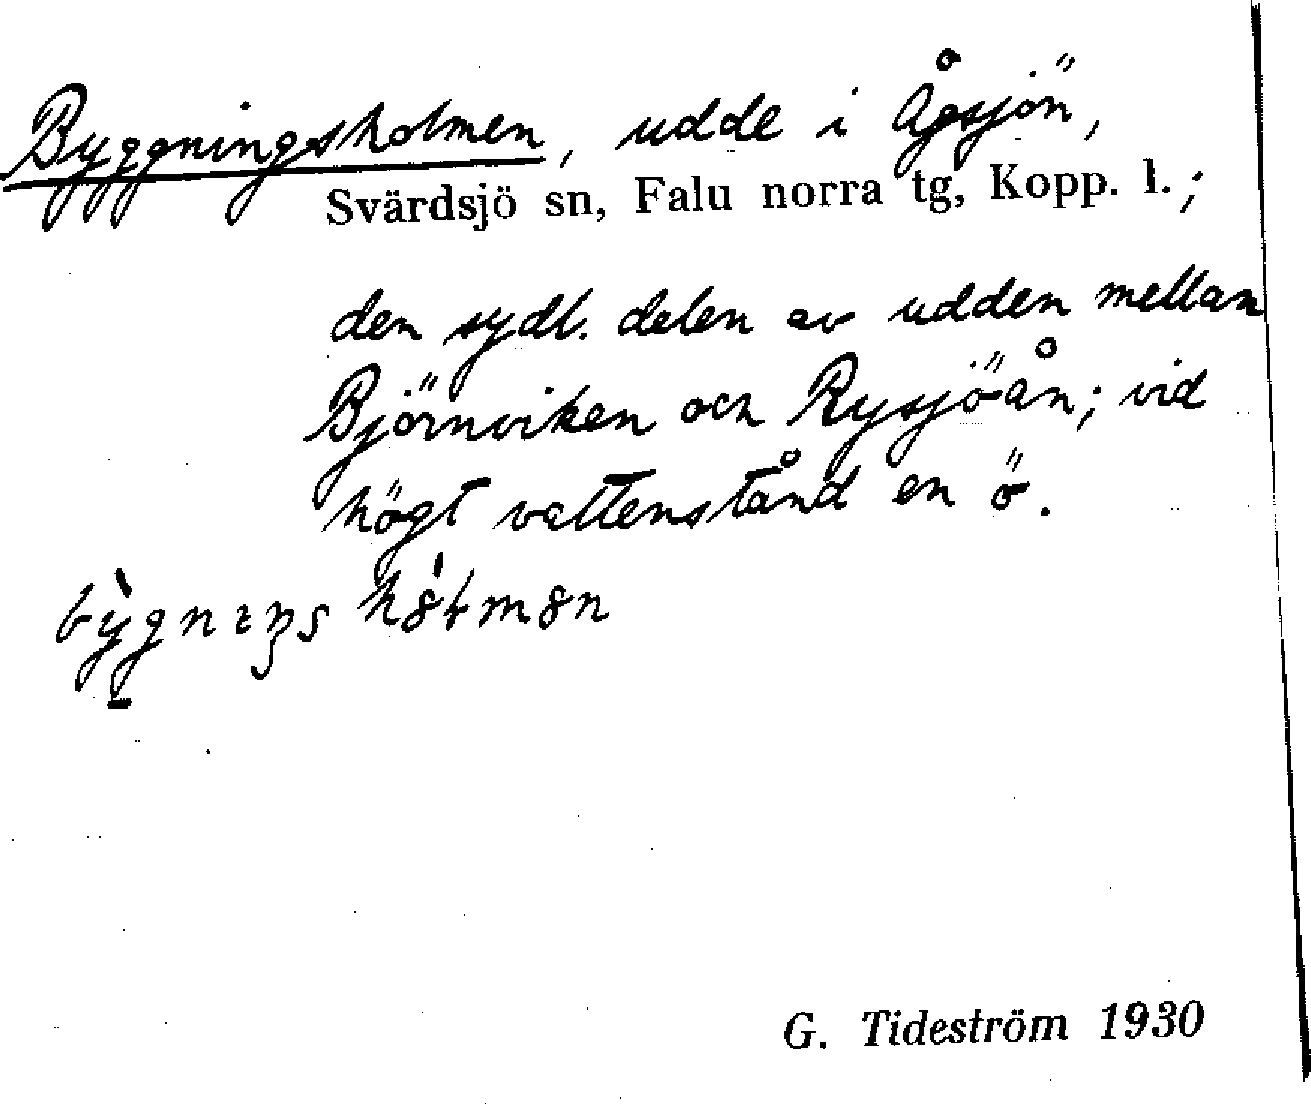 Byggningsholmen, udde i Ågsjön,
Svärdsjö sn, Falu norra tg, Kopp. l.;
den sydl. delen av udden mellan
Björnviken och Rysjöån; vid
högt vattenstånd en ö.
G. Tideström 1930